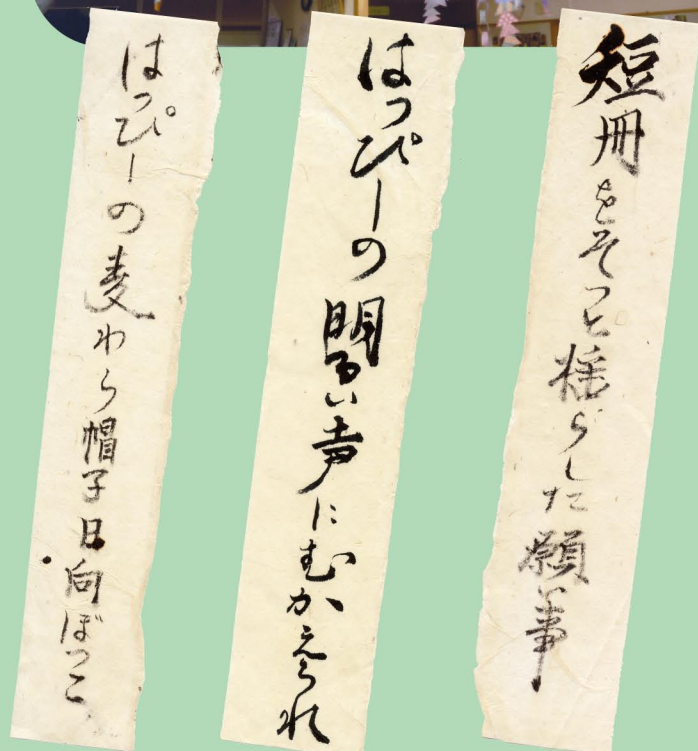 短冊をそっと揺らした願い事
はっぴーの明るい声にむかえられ
はっぴーの麦わら帽子日向ぼっこ